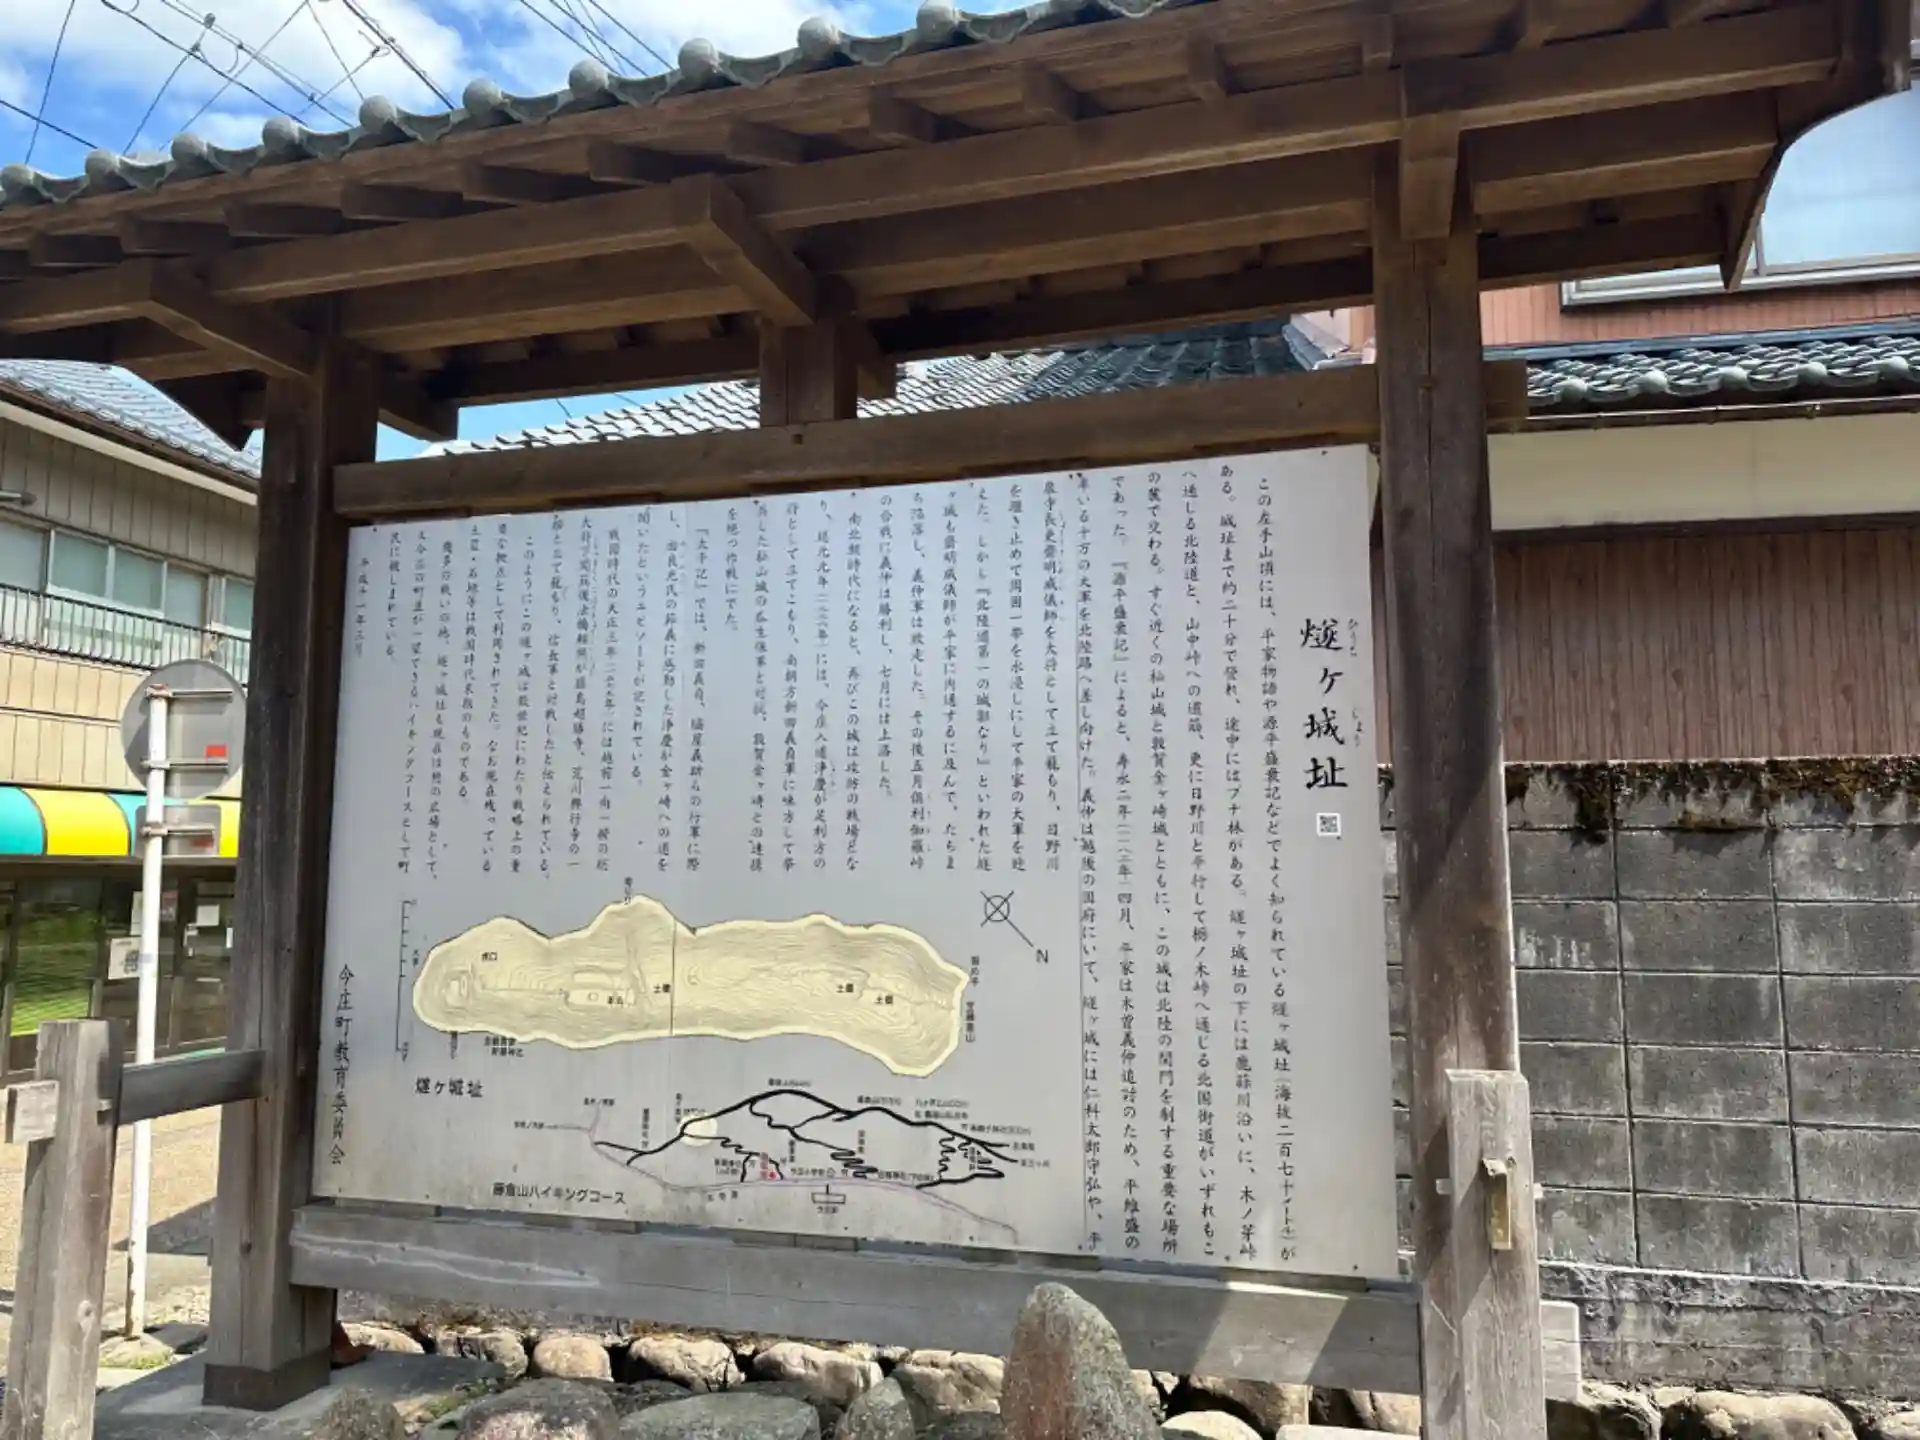 燧ヶ城址
ひうち
じょう
この左手山頂には、平家物語や源平盛衰記などでよく知られている燧ヶ城址(海抜二百七十メートル)が
ある。城址まで約二十分で登れ、途中にはブナ林がある。燧ヶ城址の下には鹿蒜川沿いに、木ノ芽峠
へ通じる北陸道と、山中峠への道筋、更に日野川と平行して栃ノ木峠へ通じる北国街道がいずれもこ
の麓で交わる。すぐ近くの杣山城と敦賀金ヶ崎城とともに、この城は北陸の関門を制する重要な場所
であった。『源平盛衰記』によると、寿永二年(一一八三年)四月、平家は木曽義仲追討のため、平維盛の
率いる十万の大軍を北陸路へ差し向けた。義仲は越後の国府にいて、燧ヶ城には仁科太郎守弘や、平
泉寺長吏齋明威儀師を大将として立て籠もり、日野川
を堰き止めて周囲一帯を水浸しにして平家の大軍を迎
えた。しかし『北陸道第一の城郭なり』といわれた燧
ヶ城も齋明威儀師が平家に内通するに及んで、たちま
ち陥落し、義仲軍は敗走した。その後五月倶利伽羅峠
の合戦に義仲は勝利し、七月には上洛した。
南北朝時代になると、再びこの城は攻防の戦場とな
り、延元元年(一三三六年)には、今庄入道浄慶が足利方の
将として立てこもり、南朝方新田義貞軍に味方して挙
兵した杣山城の瓜生保軍と対抗、敦賀金ヶ崎との連携
を絶つ作戦にでた。
『太平記』では、新田義貞、脇屋義助らの行軍に際
し、由良光氏の節義に感動した浄慶が金ヶ崎への道を
開いたというエピソードが記されている。
戦国時代の天正三年(一五七五年)には越前一向一揆の総
大将下間筑後法橋頼照が藤島超勝寺、荒川興行寺の一
揆と立て籠もり、信長軍と対戦したと伝えられている。
このようにこの燧ヶ城は数世紀にわたり戦略上の重
要な拠点として利用されてきた。なお現在残っている
土塁・石垣等は戦国時代末期のものである。
幾多の戦いの地、燧ヶ城址も現在は憩の広場として、
又今庄の町並が一望できるハイキングコースとして町
民に親しまれている。
平成十一年三月
今庄町教育委員会
N
虎口
本丸
土橋
土橋
土橋
燧ヶ城址
藤倉山ハイキングコース